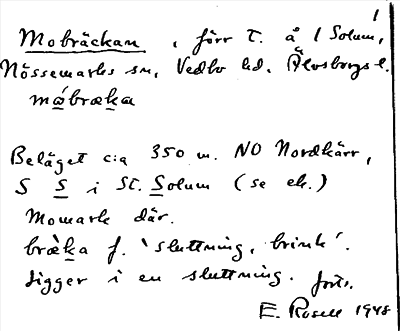 1
Mobräckan, förr T. å 1 Solum,
Nössemarks sn, Vedbo hd, Älvsborgs l.
måbræka
Beläget c:a 350 m. NO Nordkärr,
S S i St. Solum (se ek.)
Momark där.
bræ̀ka f. 'sluttning, brink'.
Ligger i en sluttning. forts.
E. Rosell 1948